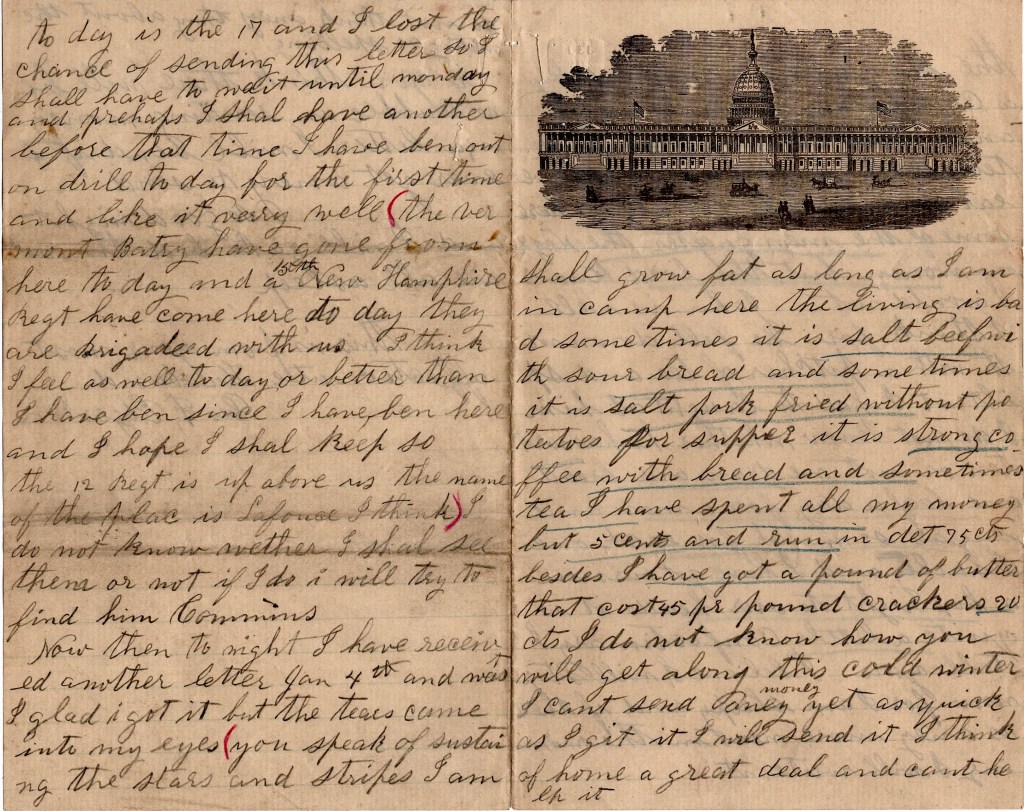 to day is the 17 and I lost the
chance of sending this letter so I
shall have to wait until monday
and prehaps I shal have another
before that time I have ben out
on drill to day for the first time
and like it verry well (the ver
mont Batry have gone from
here to day and a 15th New Hamphire
Regt have come here to day they
are brigadeed with us I think
I feel as well to day or better than
I have ben since I have ben here
and I hope I shal keep so
the 12 Regt is up above us the name
of the plac is Lafouce I think) I
do not know wether I shal see
them or not if I do i will try to
find him Commins
Now then to night I have receiv
ed another letter Jan 4th and was
I glad i got it but the tears came
into my eyes (you speak of sustai
ng the stars and stripes I am
shall grow fat as long as I am
in camp here the living is ba
d some times it is salt beef wi
th sour bread and some times
it is salt pork fried without po
tatoes for supper it is strong co
ffee with bread and sometimes
tea I have spent all my money
but 5 cents and run in det 75 cts
besdes I have got a pound of butter
that cost 45 pr pound crackers 20
cts I do not know how you
will get along this cold winter
I cant send aney money yet as quick
as I git it I will send it I think
of home a great deal and cant he
lp it